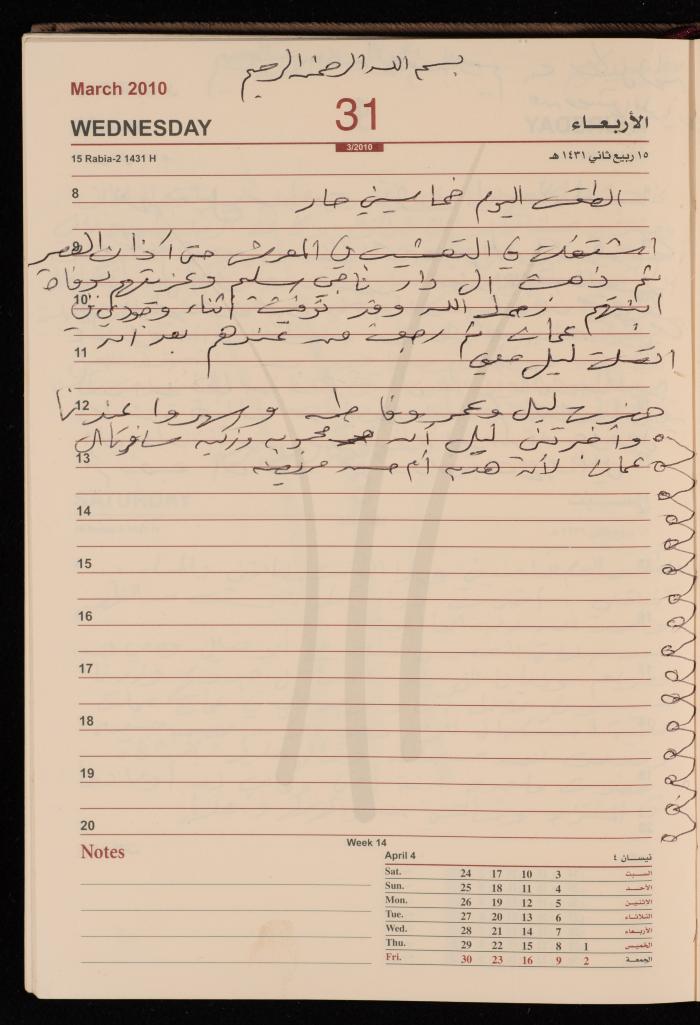 بسم الله الرحمن الرحيم
March 2010
31
WEDNESDAY
الأربعاء
3/2010
15 Rabia-2 1431 H
١٥ ربيع ثاني ١٤٣١ هـ
8
الطقس اليوم خماسيني حار
9
اشتغلت في التعشيب في حتى أذان العصر
ثم ذهبت الى دار ناجي سليم وعزيتهم بوفاة
10
ابنتهم رحمها الله وقد توفيت أثناء وجودي في
عمان ثم رجعت من عندهم بعد ان
11
ليلى معي
12
ليلى وعمر وفاطمه وسهروا عندنا
وأخبرتني ليلى أنه محبوبه وزكيه سافرتا الى
13
عمان لأنه هديه أم حسن مريضه
14
15
16
17
18
19
20
Notes
Week 14
April 4
نيسان ٤
Sat. 24 17 10 3 السبت
Sun. 25 18 11 4 الأحد
Mon. 26 19 12 5 الاثنين
Tue. 27 20 13 6 الثلاثاء
Wed. 28 21 14 7 الأربعاء
Thu. 29 22 15 8 1 الخميس
Fri. 30 23 16 9 2 الجمعة